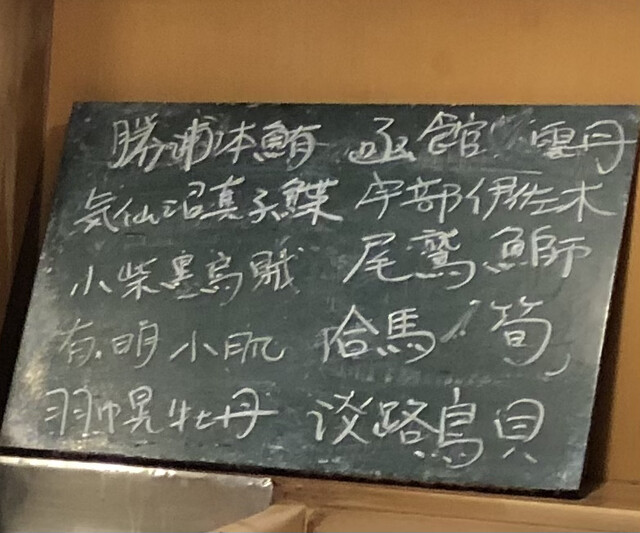 勝浦本鮪 函館 雲丹
気仙沼真子鰈 宇部伊佐木
小柴墨烏賊 尾鷲鰤
有明小肌 合馬 筍
羽幌牡丹 淡路鳥貝